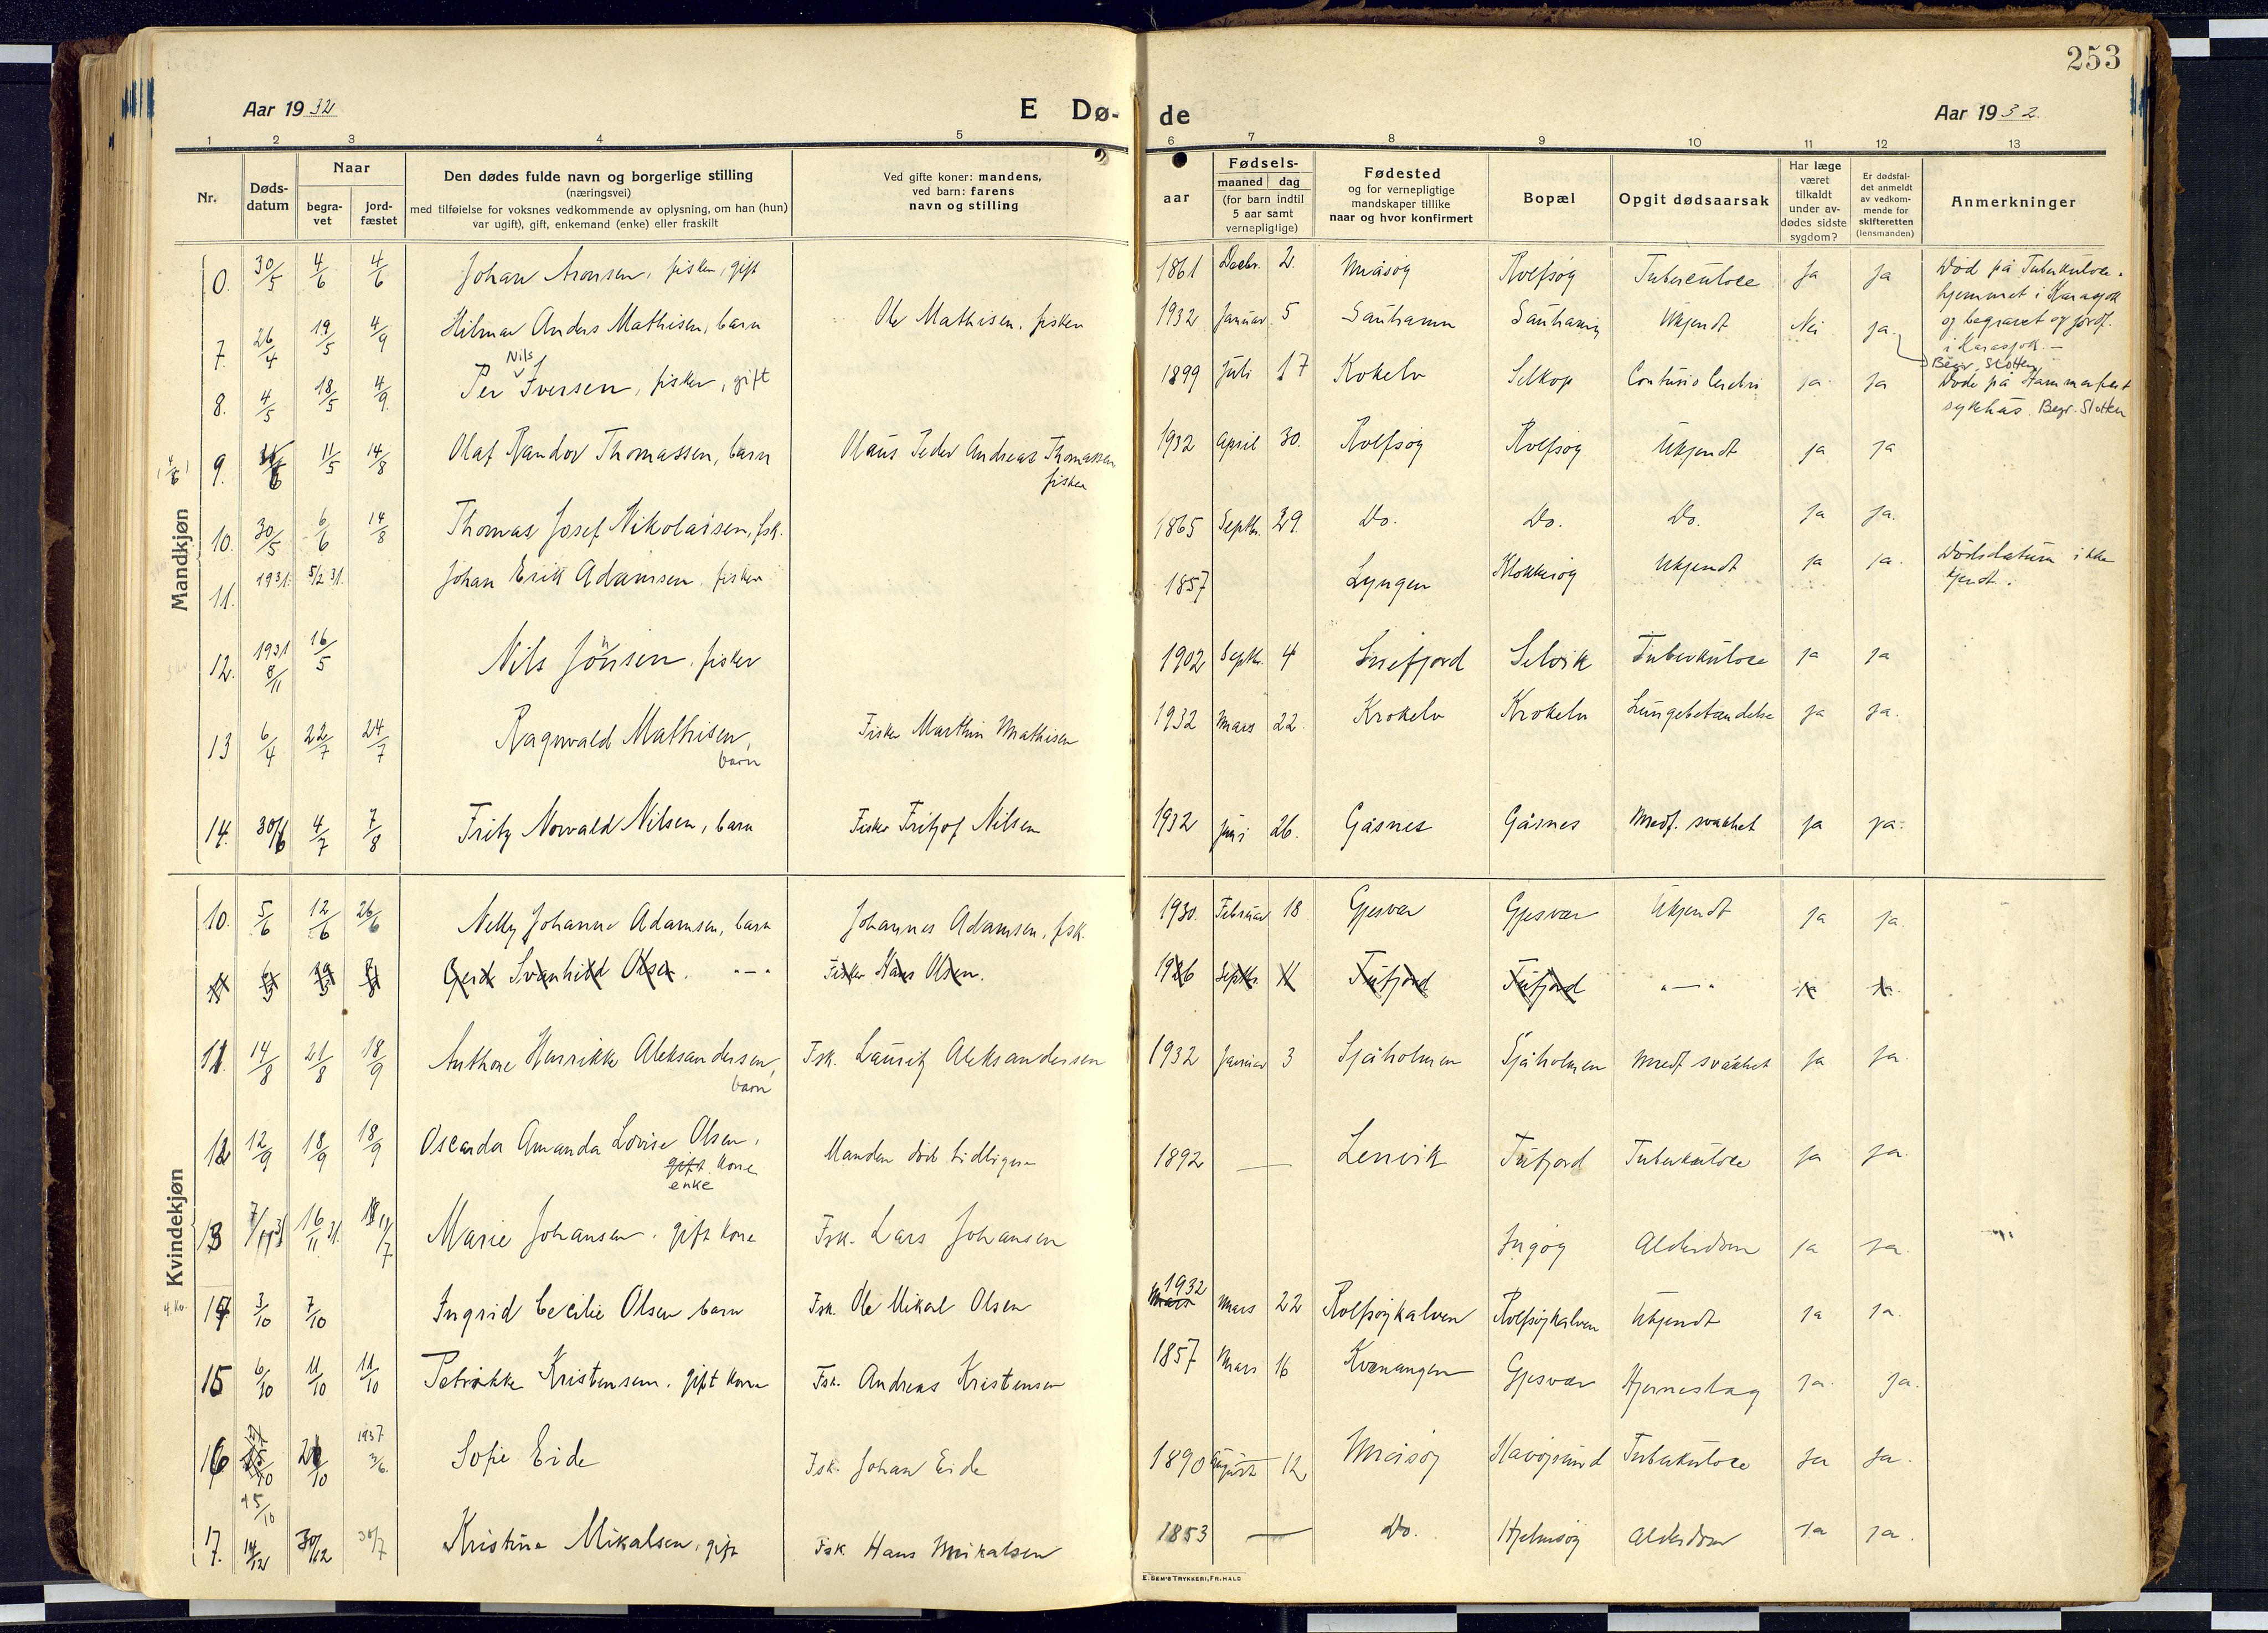 253
Aar 1932
E Dø-
de
Aar 1932.
1 2 3 4 5 6 7 8 9 10 11 12 13
Nr.
Døds-
datum
Naar
begra-
vet
jord-
fæstet
Den dødes fulde navn og borgerlige stilling
(næringsvei)
med tilføielse for voksnes vedkommende av oplysning, om han (hun)
var ugift), gift, enkemand (enke) eller fraskilt
Ved gifte koner: mandens,
ved barn: farens
navn og stilling
Fødsels-
aar
maaned dag
(for barn indtil
5 aar samt
vernepligtige)
Fødested
og for vernepligtige
mandskaper tillike
naar og hvor konfirmert
Bopæl
Opgit dødsaarsak
Har læge
været
tilkaldt
under av-
dødes sidste
sygdom?
Er dødsfal-
det anmeldt
av vedkom-
mende for
skifteretten
(lensmanden)
Anmerkninger
Mandkjøn
0. 30/5 4/6 4/6 Johan Aronsen, fisker, gift 1861 Decbr. 2. Måsøy Rolfsøy Tuberculose Ja Ja Død på Tuberkulose-
hjemmet i Karasjok
og begravet og jordf.
i Karasjok.—
7. 26/4 19/5 4/9 Hilmar Anders Mathisen, barn Ole Mathisen, fisker 1932 Januar 5 Sauhamn Sauhamn Ukjendt Nei ja. Begr. Slotten
8. 4/5 18/5 4/9 Per Nils Iversen, fisker, gift 1899 Juli 17 Kokelv Selkop Contusio Cerebri ja ja Døde på Hammerfest
sykehus. Begr. Slotten
(4/6) 9. 11/5 14/8 Olaf Randor Thomassen, barn Olaus Peder Andreas Thomassen
fisker 1932 April 30. Rolfsøy Rolfsøy Ukjendt ja ja
10. 30/5 6/6 14/8 Thomas Josef Nikolaisen, fsk. 1865 Septbr. 29. Do. Do. Do. Ja ja.
11. 1931. 5/2 31. Johan Erik Adamsen, fisker 1857 Lyngen Klokkerøy Ukjendt ja ja. Dødsdatum ikke
kjendt.
12. 1931 8/11 16/5 Nils Jonsen, fisker 1902 Septbr. 4 Snefjord Selvik Tuberkulose ja ja
13 6/4 22/7 24/7 Ragnvald Mathisen,
barn Fisker Marthin Mathisen 1932 Mars 22. Krokelv Krokelv Lungebetændelse ja ja.
14. 30/6 4/7 7/8 Fritz Norvald Nilsen, barn Fisker Fritjof Nilsen 1932 Juni 26. Gåsnes Gåsnes Medf. svakhet ja ja.
Kvindekjøn
10. 5/6 12/6 26/6 Nelly Johanne Adamsen, barn Johannes Adamsen, fsk. 1930. Februar 18 Gjesvær Gjesvær Ukjendt ja ja.
Gerd Svanhild Olsen. "—" Fisker Hans Olsen. 1926 Septbr. 11 Tufjord Tufjord "—" ja ja.
11. 14/8 21/8 18/9 Anthone Henrikke Aleksandersen,
barn Fsk. Lauritz Aleksandersen 1932 Januar 3 Sjåholmen Sjåholmen Medf svakhet ja ja.
12 12/9 18/9 18/9 Oscarda Amanda Lovise Olsen,
gift kone
enke Manden død tidligere 1892 — Lenvik Tufjord Tuberkulose ja ja.
13 7/11 31 16/11 31. 17/7 Marie Johansen, gift kone Fsk. Lars Johansen Ingøy Alderdom ja ja.
14 3/10 7/10 Ingrid Cecilie Olsen barn Fsk. Ole Mikal Olsen 1932 Mars 22 Rolfsøykalven Rolfsøykalven Ukjendt ja ja.
15 6/10 11/10 11/10 Petrikke Kristensen, gift kone Fsk. Andreas Kristensen 1857 Mars 16 Kvænangen Gjesvær Hjerneslag ja. ja.
16 15/10 1937 3/6. Sofie Eide Fsk. Johan Eide 1890 August 12 Måsøy Havøysund Tuberkulose ja ja.
17. 14/12 30/12 30/7 Kristine Mikalsen, gift Fsk Hans Mikalsen 1853 — Do. Hjelmsøy Alderdom ja ja.
E. SEM'S TRYKKERI, FR.HALD